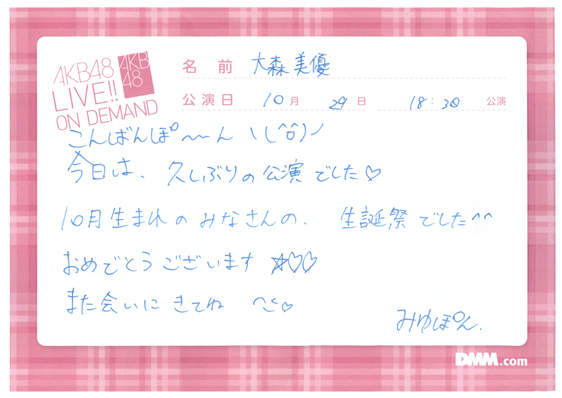 AKB48
LIVE!!
ON DEMAND
AKB
48
名 前 大森美優
公演日 10月 29日 18:30 公演
こんばんぽ〜〜ん ヽ(^o^)ノ
今日は、久しぶりの公演でした♡
10月生まれのみなさんの、生誕祭でした^^
おめでとうございます ☆♡♡
また会いにきてね
みゆぽん.
DMM.com